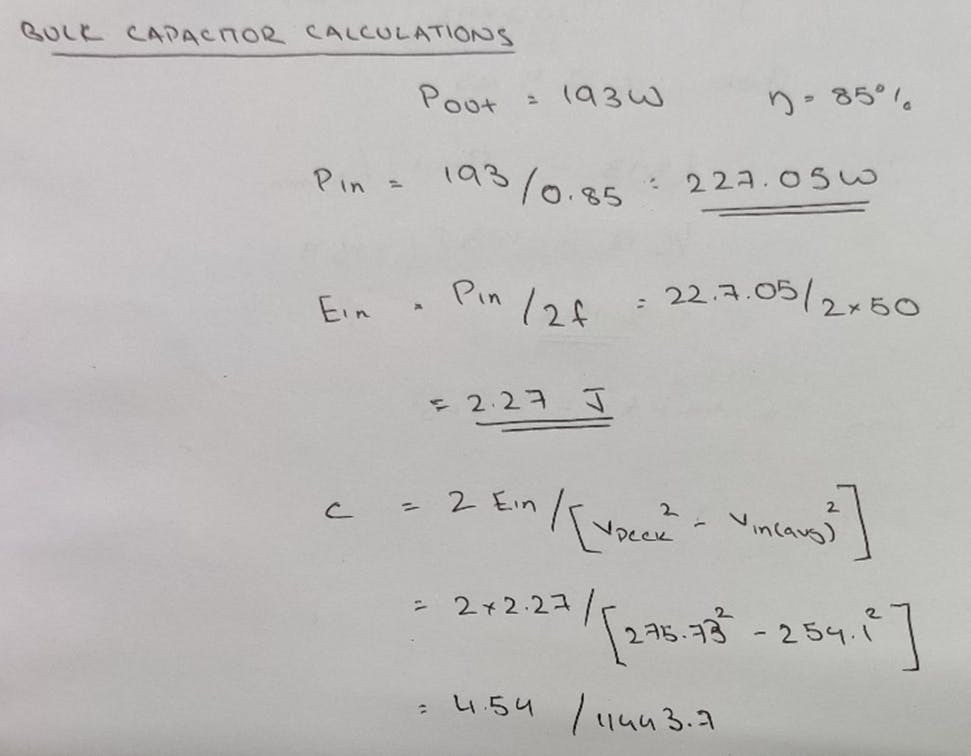 BULK CAPACITOR CALCULATIONS
Pout = 193W η = 85%
Pin = 193/0.85 = 227.05W
Ein = Pin/2f = 22.7.05/2×50
= 2.27 J
C = 2 Ein/[Vpeak² - Vin(avg)²]
= 2×2.27/[275.73² - 254.1²]
= 4.54 / 11443.7